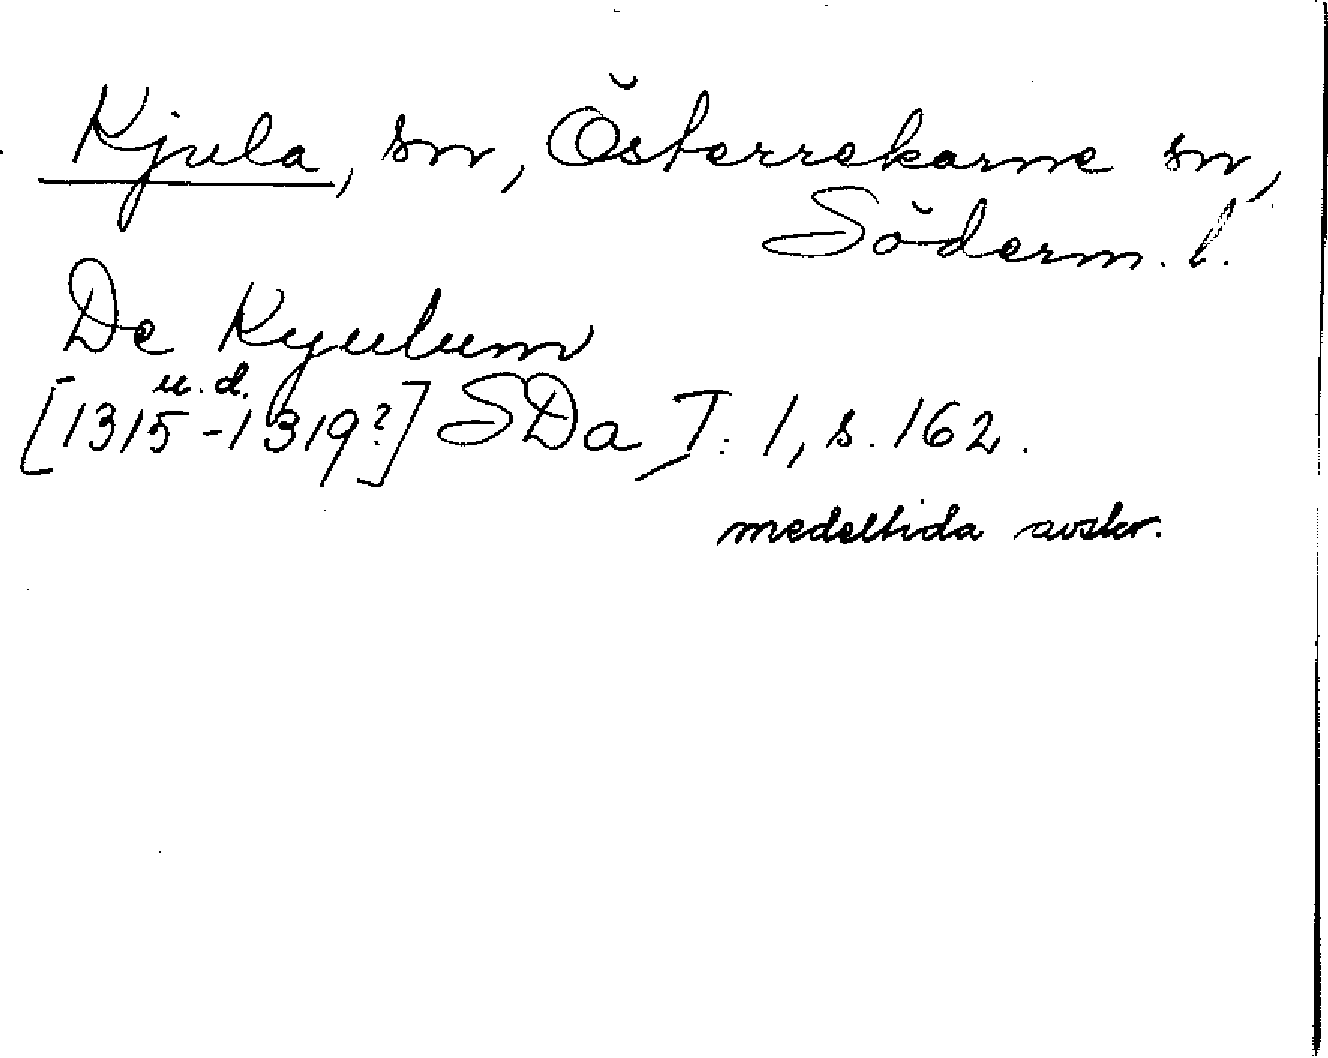 Kjula, sn, Österrekarne sn,
Söderm. l.
De Kyulum
u. d.
[1315-1319?] SDa I: 1, s. 162.
medeltida avskr.